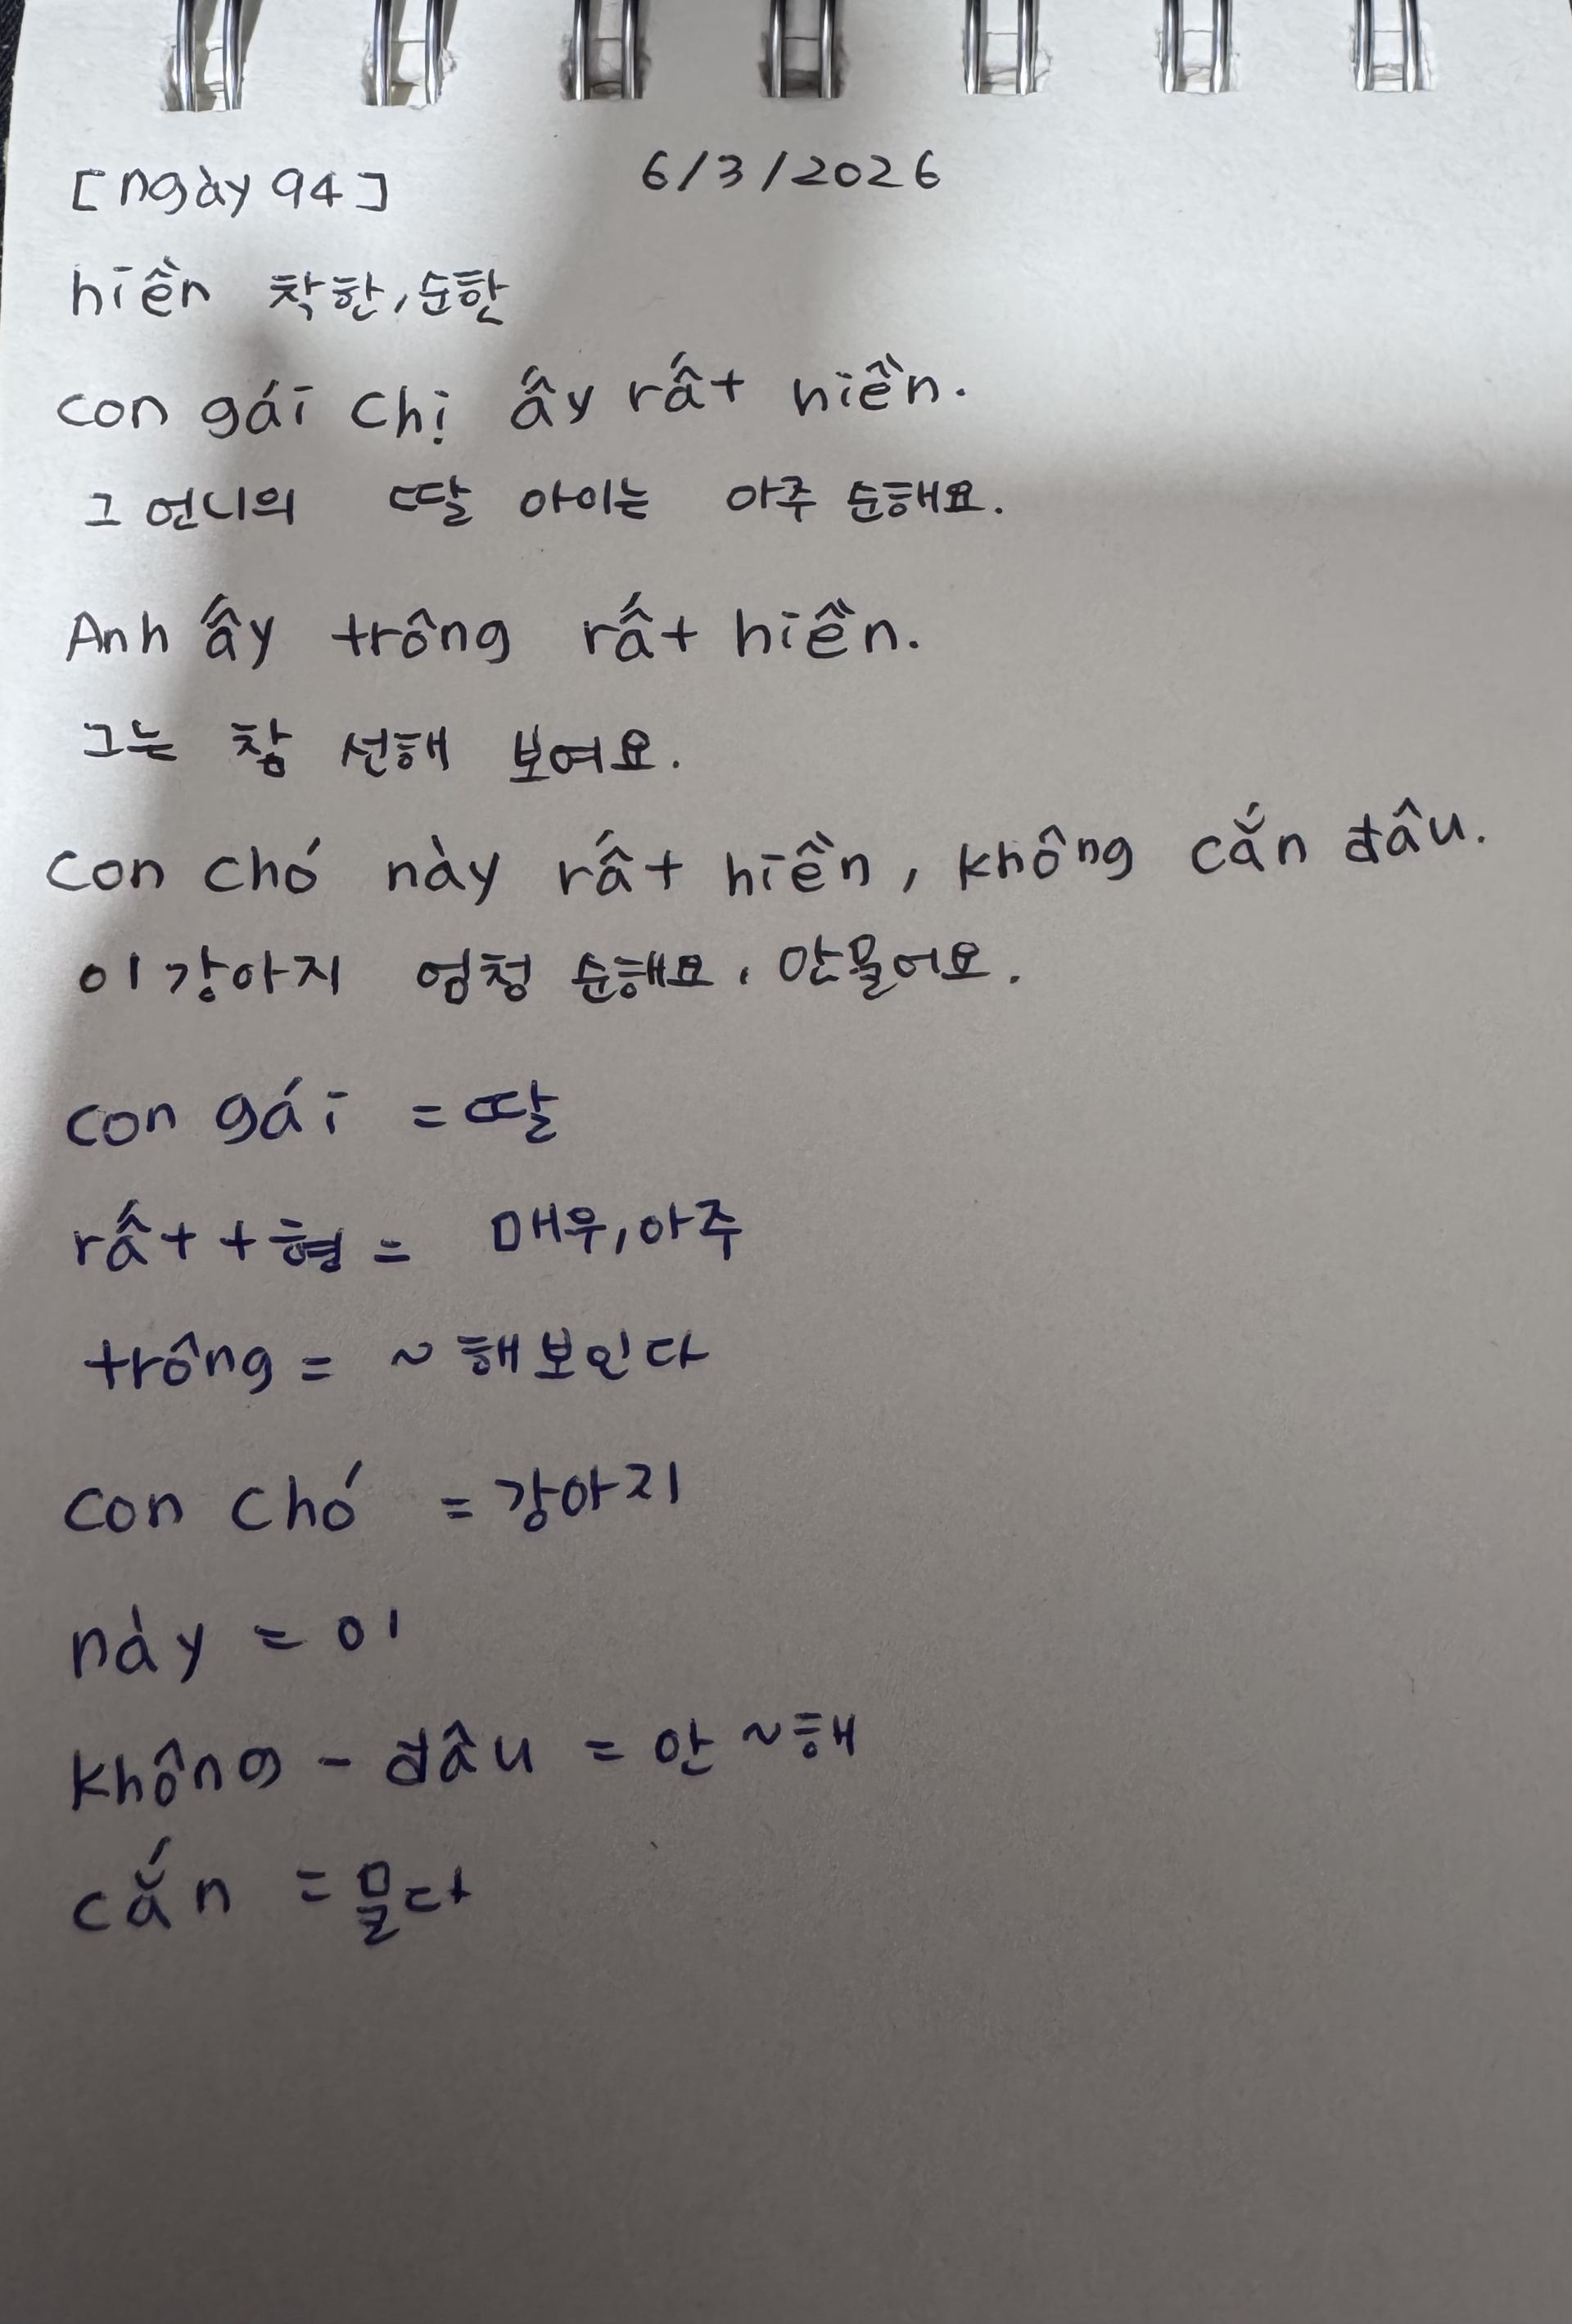 [ngày 94] 6/3/2026
hiền 착한, 순한
con gái chị ấy rất hiền.
그 언니의 딸 아이는 아주 순해요.
Anh ấy trông rất hiền.
그는 참 선해 보여요.
con chó này rất hiền, không cắn đâu.
이 강아지 엄청 순해요, 안물어요.
con gái = 딸
rất + 형 = 매우, 아주
trông = ~ 해보인다
con chó = 강아지
này = 이
không - đâu = 안 ~해
cắn = 물다